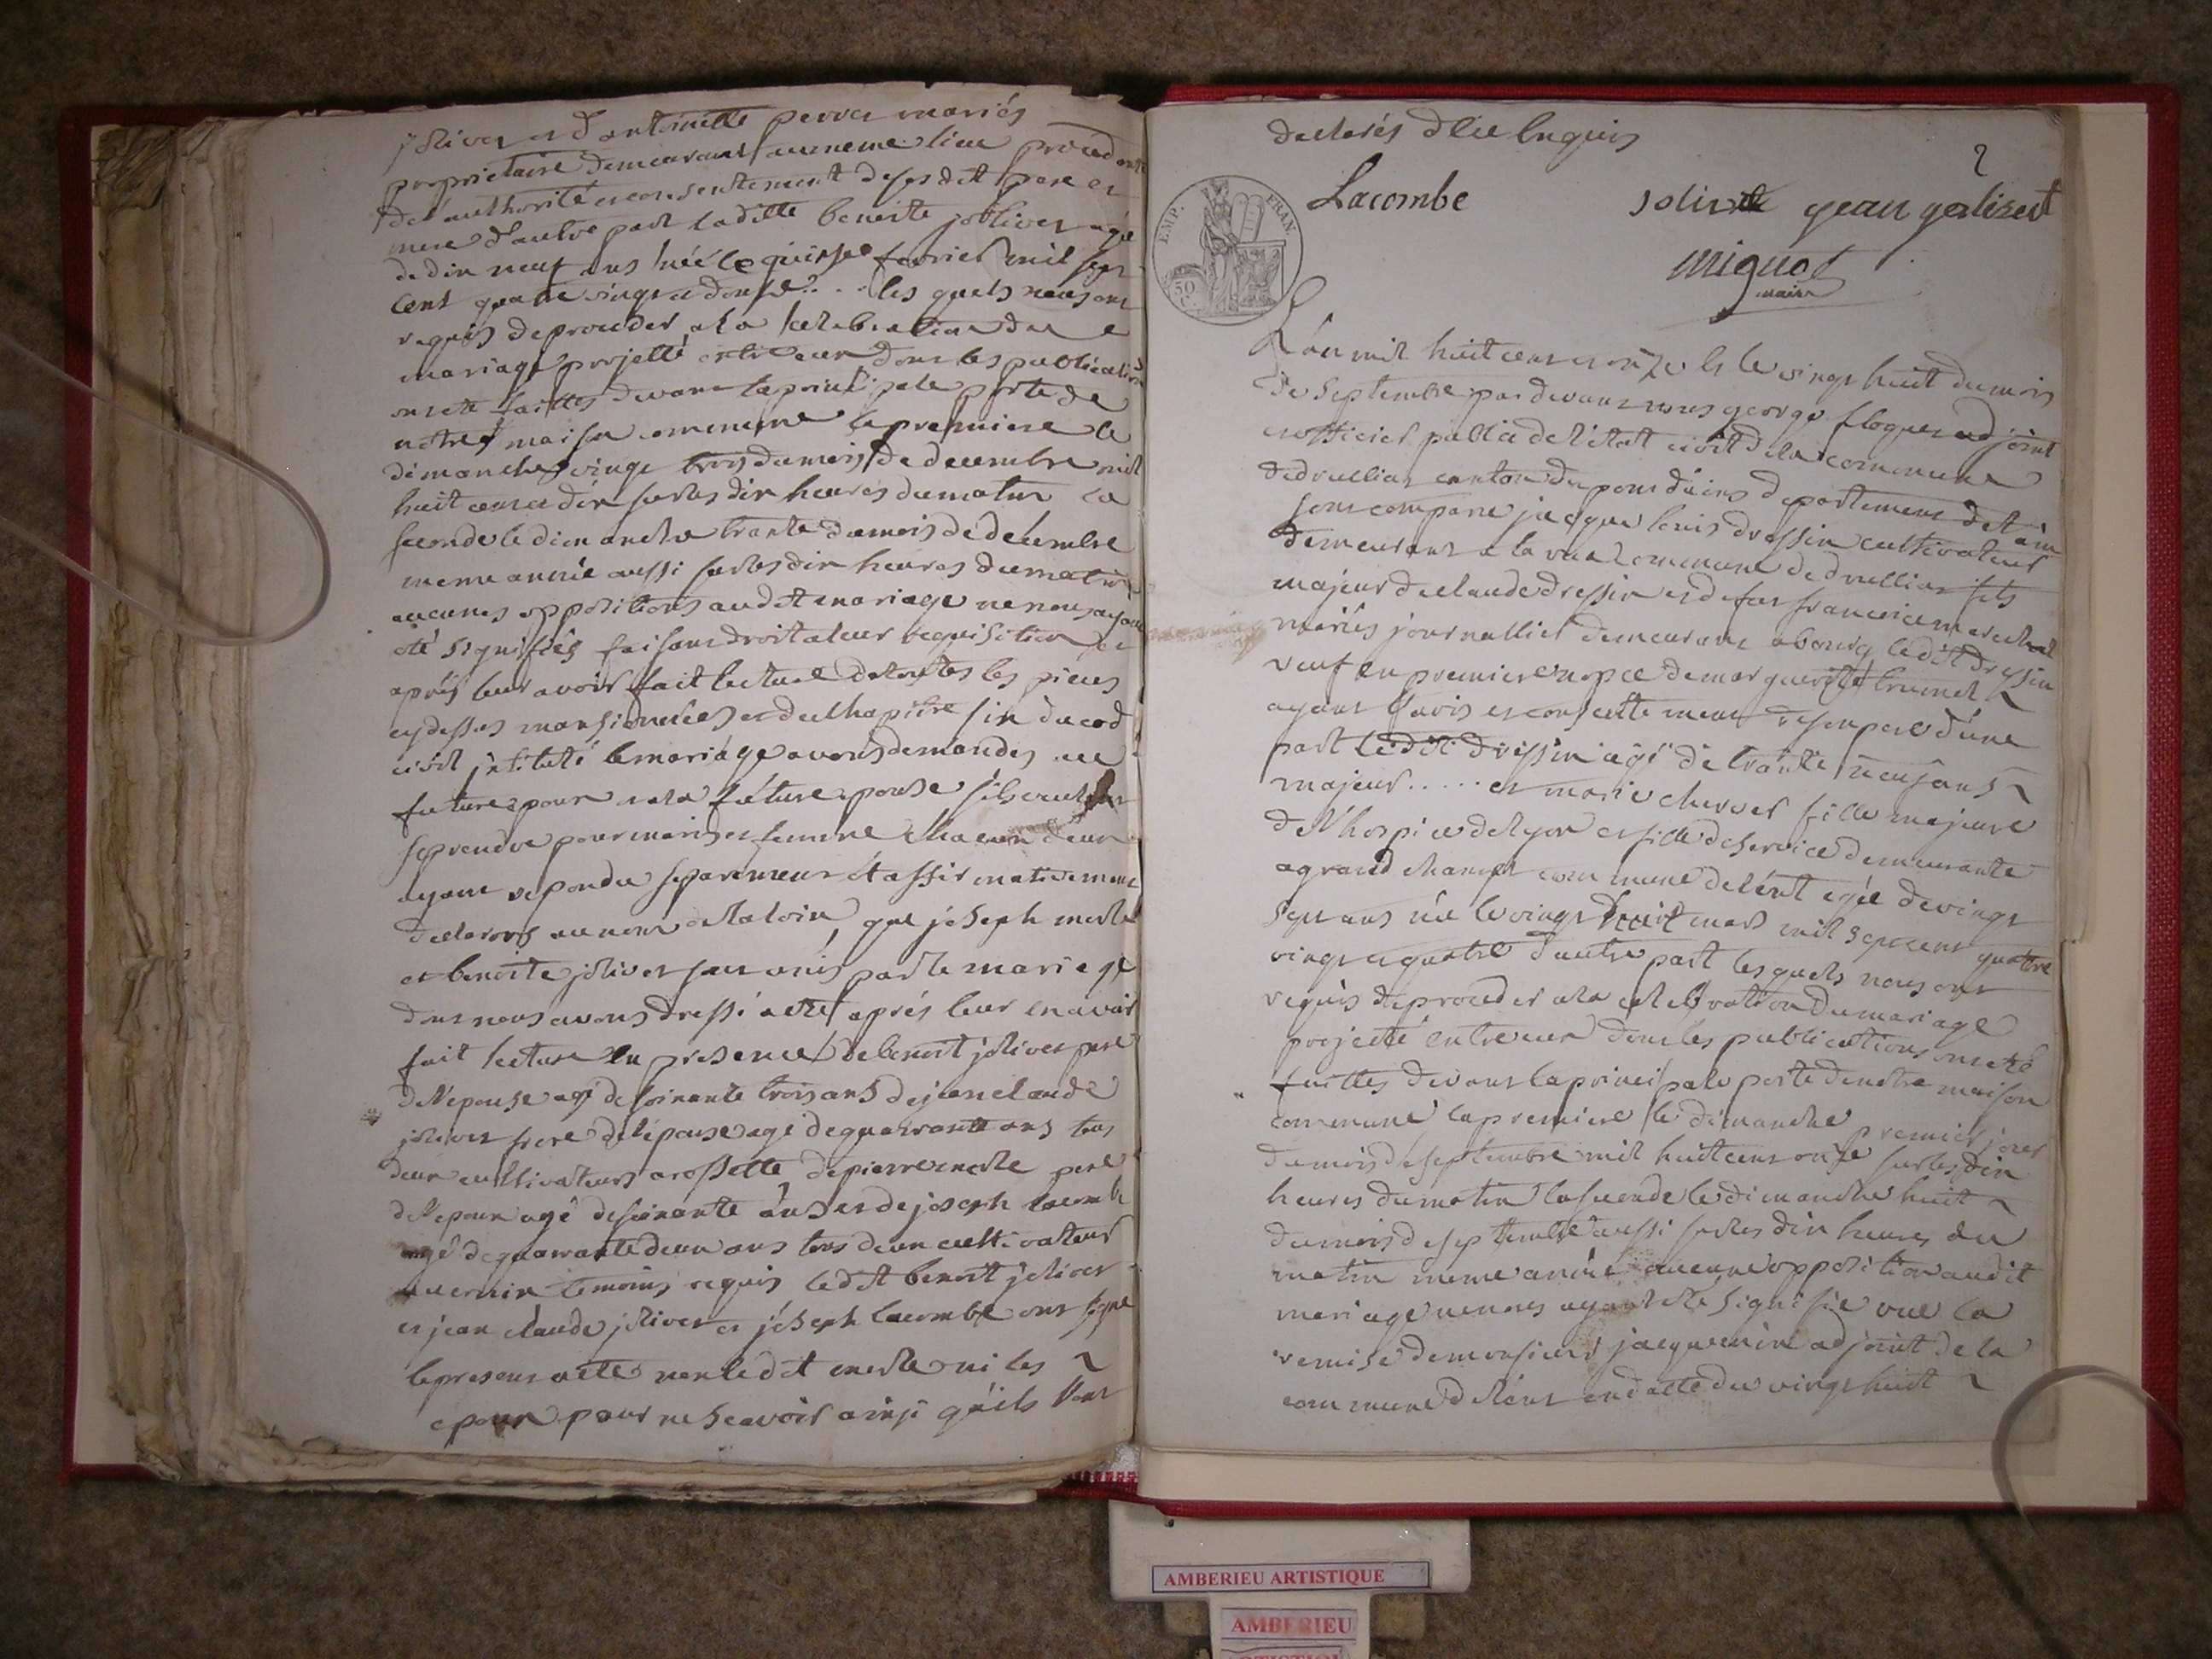 joliver et d'antoinette perret mariés
propriétaire demeurant aumeme lieu procedant
de l'authorité et consentement de ses dit pere et
mere d'autre part laditte benoite joliver agé
de dix neuf ans née le quinse fevrier mil sept
cent quatre vingt et douse... les quels nous ont
requis de proceder a la celebration du
mariage projetté entre eux dont les publications
ont été faittes devant la principale porte de
notre maison commune la premiere le
dimanche vingt trois du mois de decembre mil
huit cent et dix sur les dix heures du matin la
seconde le dimanche trante du mois de décembre
meme année aussi sur les dix heures du matin
aucunes oppositions audit mariage ne nous ayant
été signifiés faisant droit a leur requisition et
aprés leur avoir fait lecture de toutes les pieces
cy dessus mansionnées et du chapitre six du cod
civil intitulé le mariage avons demandés au
futur epoux et a la future epouse s'ils veulent
se prendre pour maris et femme chacun d'eux
ayant repondu separement et affirmativement
declarons au nom de la loix, que joseph merle
et benoite joliver sont unis par le mariage
dont nous avons dressé acte aprés leur en avoir
fait lecture en presence de benoit joliver pere
de l'epouse agé de soixante trois ans de jean claude
joliver frere de l'epouse agé de quarante ans tous
deux cultivateurs a rossette de pierre merle pere
de l'epoux agé de soixante ans et de joseph lacombe
agé de quarante deux ans tous deux cultivateurs
temoins requis ledit benoit joliver
et jean claude joliver et joseph lacombe ont signé
le present acte non ledit merle ni les
epoux pour ne scavoir ainsi qu'ils l'ont
declarés d'ce enquis
EMP. FRAN.
50 C.
Lacombe
jolivet jean jolivert
mignot
maire
L'an mil huit cent et onze et le vingt huit du mois
de septembre par devant nous george floquet adjoint
et officier public de l'état civil de la commune
de druilliat canton du pont d'ains departement de l'ain
sont comparu jacque louis dressin cultivateur
demeurant a la commune de druilliat fils
majeur de claude dressin et de feu francoice marechal
mariés journallier demeurant a bourg ledit dressin
veuf en premiere nopce de marguerite brunet
ayant l'avis et conscettement de son pere d'une
part ledit dressin agé de trante neuf ans
majeur ..... et marie cherver fille majeure
de l'hospice de lyon et fille de service demeurante
a grand champt commune de lent agée de vingt
sept ans née le vingt huit mars mil sept cent quatre
vingt et quatre d'autre part les quels nous ont
requis de proceder a la celebration du mariage
projetté entre eux dont les publications ont eté
faittes devant la principale porte de notre maison
commune la premiere le dimanche premier jour
du mois de septembre mil huit cent onze sur les dix
heures du matin la seconde le dimanche huit
du mois de septembre aussi sur les dix heures du
matin meme année aucune opposition audit
mariage ne nous ayant été signifié vue la
remise de monsieur jacquemin adjoint de la
commune de lent en datte du vingt huit
AMBERIEU ARTISTIQUE
AMBERIEU